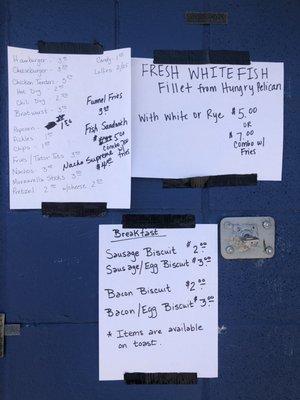 Hamburger - 3.00
Cheeseburger - 3.00
Chicken Tenders 3.00
Hot Dog 2.00
Chili Dog 2.00
Bratwurst - 3.00
Popcorn
Pickles 1.00
Chips - 1.00
Fries / Tator Tots 3.00
Nachos 3.00
Mozzarella Sticks 3.00
Pretzel 2.00 w/cheese 2.50
Candy - 1.00
Funnel Fries
3.00
Fish Sandwich
5.00
Combo 7.00
w/ fries
Nacho Supreme
$4.00
FRESH WHITEFISH
Fillet from Hungry Pelican
With White or Rye $5.00
OR
$7.00
Combo w/
Fries
Breakfast
Sausage Biscuit $2.00
Sausage/Egg Biscuit $3.00
Bacon Biscuit $2.00
Bacon/Egg Biscuit $3.00
* Items are available
on toast.